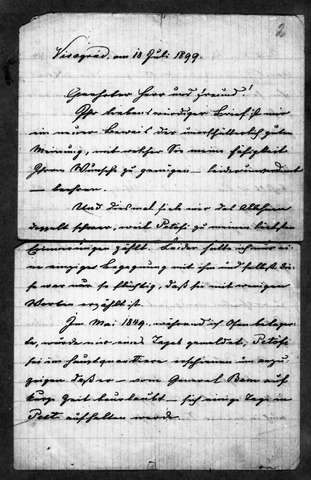 2
Visegrád, am 18 Juli 1899.
Geehrter Herr und Freund!
Ihr liebenswürdiger Brief ist mir
ein neuer Beweis der unerschütterlich guten
Meinung, mit welcher Sie meine Fähigkeit
Ihrem Wunsche zu genügen – leider unverdient
– beehren.
Und diesmal fiele mir das Ablehnen
doppelt schwer, weil Petőfi zu meinen liebsten
Erinnerungen zählt. Leider hatte ich nur ei-
ne einzige Begegnung mit ihm und selbst die-
se war nur so flüchtig, daß sie mit wenigen
Worten erzählt ist.
Im Mai 1849, während ich Ofen belager-
te, wurde mir eines Tages gemeldet, Petőfi
sei im Hauptquartiere erschienen um anzu-
zeigen daß er – vom General Bem auf
kurze Zeit beurlaubt – sich einige Tage in
Pest aufhalten werde.